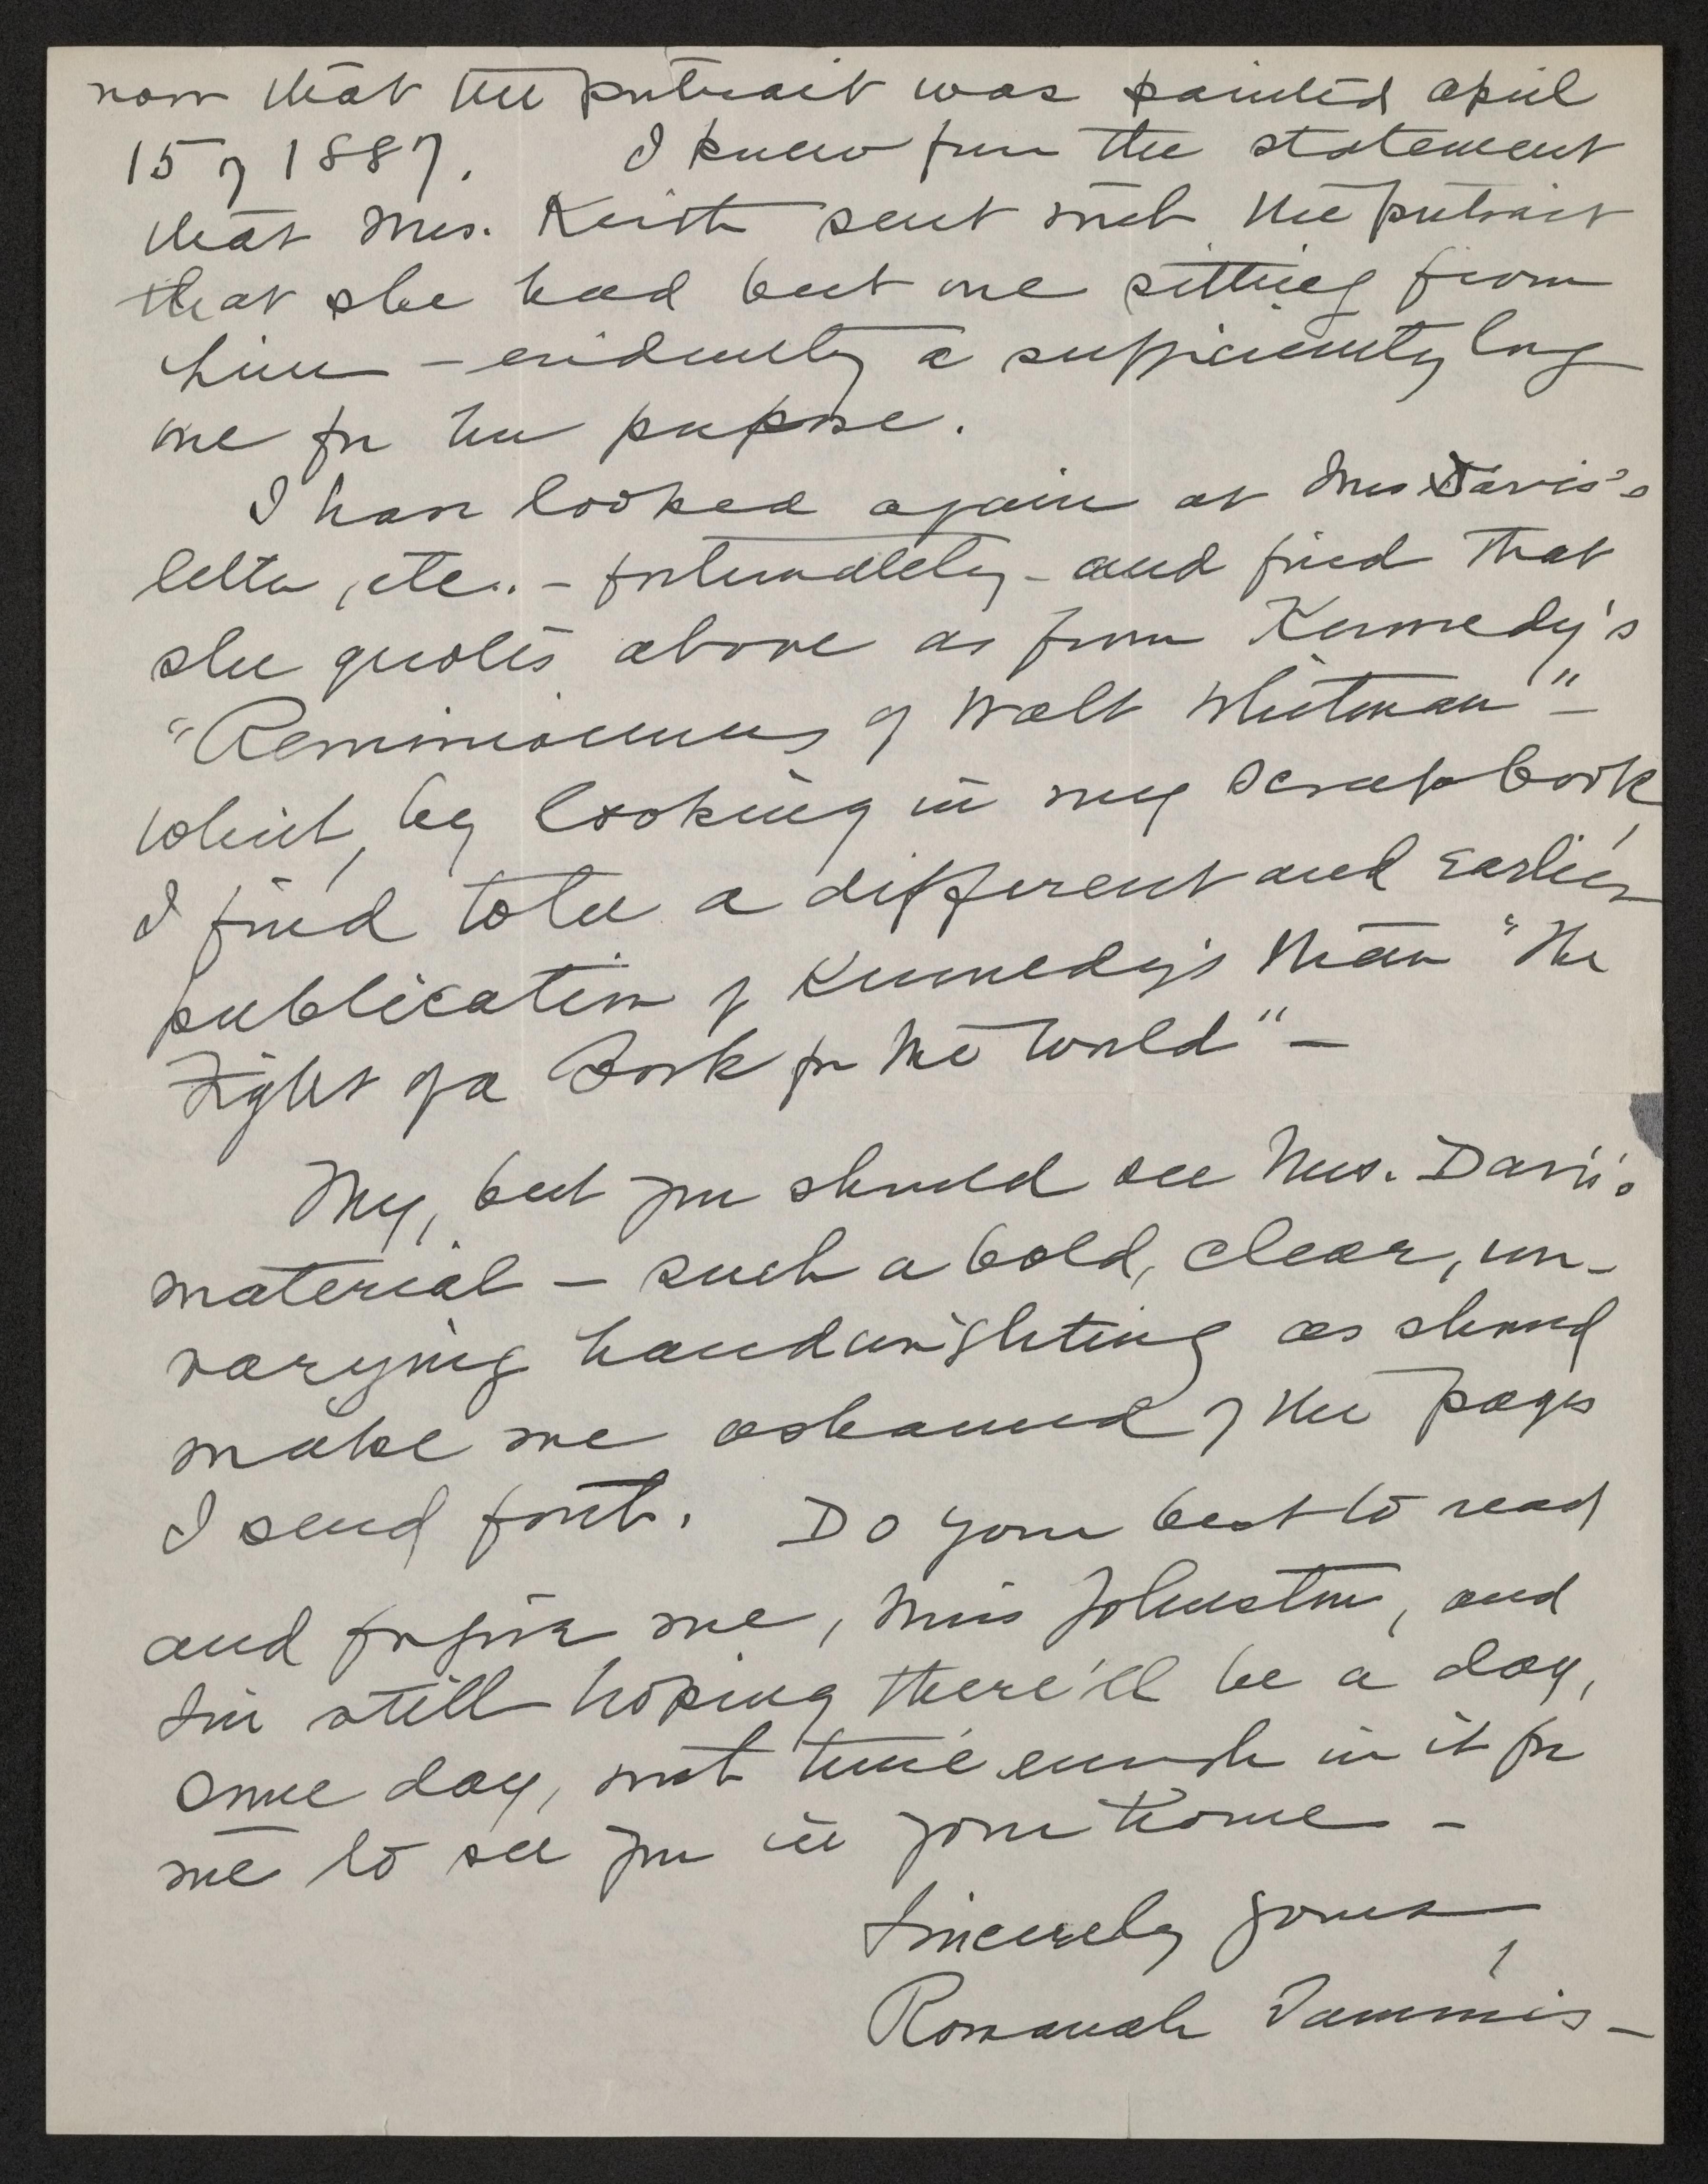 now that the portrait was painted April
15 of 1887. I knew from the statement
that Mrs. Keith sent with the portrait
that she had but one sitting from
him – evidently a sufficiently long
one for her purpose.
I have looked again at Mrs Davis's
letter, etc. – fortunately – and find that
she quotes above as from Kennedy's
"Reminiscences of Walt Whitman" –
which, by looking in my scrapbook,
I find to be a different and earlier
publication of Kennedy's than "The
Fight of a Book for the World" –
My, but you should see Mrs. Davis'
material – such a bold, clear, un-
varying handwrighting as should
make me ashamed of the pages
I send forth. Do your best to read
and forgive me, Miss Johnston, and
I'm still hoping there'll be a day,
some day, with time enough in it for
me to see you in your home –
Sincerely yours,
Romanah Sammis –